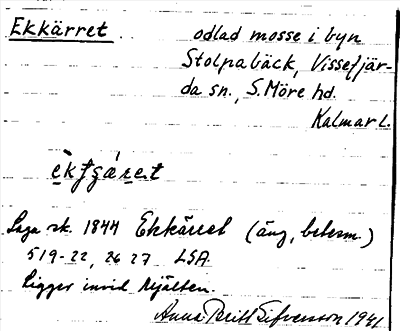 Ekkärret odlad mosse i byn
Stolpabäck, Vissefjär-
da sn., S. Möre hd.
Kalmar l.
Laga sk. 1844 Ekkärret (äng, betesm.)
519-22, 26 27 LSA.
Ligger invid Mjälten.
Anna-Britt Sifversson 1941